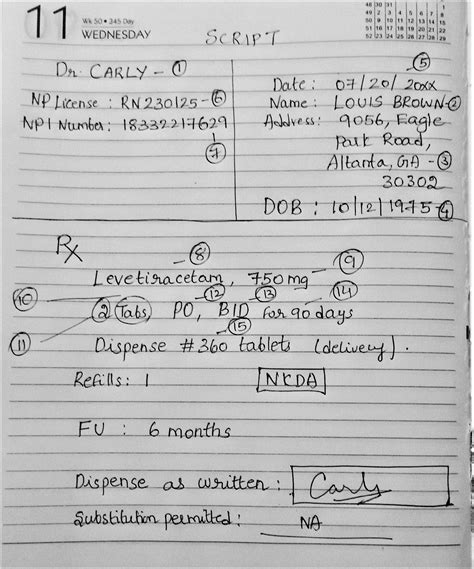 11 Wk 50 • 345 Day
WEDNESDAY
48 30 31
49 2 3 4 5 6 7 8
50 9 10 11 12 13 14 15
51 16 17 18 19 20 21 22
52 23 24 25 26 27 28 29
SCRIPT
Dr. CARLY - 1
NP License : RN230125 - 6
NPI Number : 18332217629
7
5
Date : 07/20/20xx
Name : LOUIS BROWN - 2
Address : 9056, Eagle
Park Road,
Altanta, GA - 3
30302
DOB : 10/12/1975 - 4
Rx
8 9
Levetiracetam, 750mg
10 12 13 14
2 Tabs PO, BID for 90 days
11 15
Dispense #360 tablets (delivery).
Refills : 1 NKDA
FU : 6 months
Dispense as written : Carly
Substitution permitted : NA